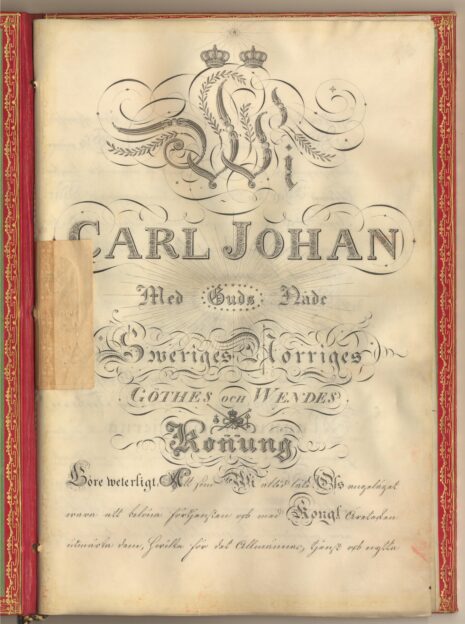 Wi
CARL JOHAN
Med Guds Nåde
Sweriges Norriges
GÖTHES och WENDES
Konung
Göre weterligt, Att som Wi altid låtit Oss angeläget
wara att belöna förtjensten och med Kongl Ärebeten
utmärka dem, hwilka för det Allmännas, tjenst och nytta